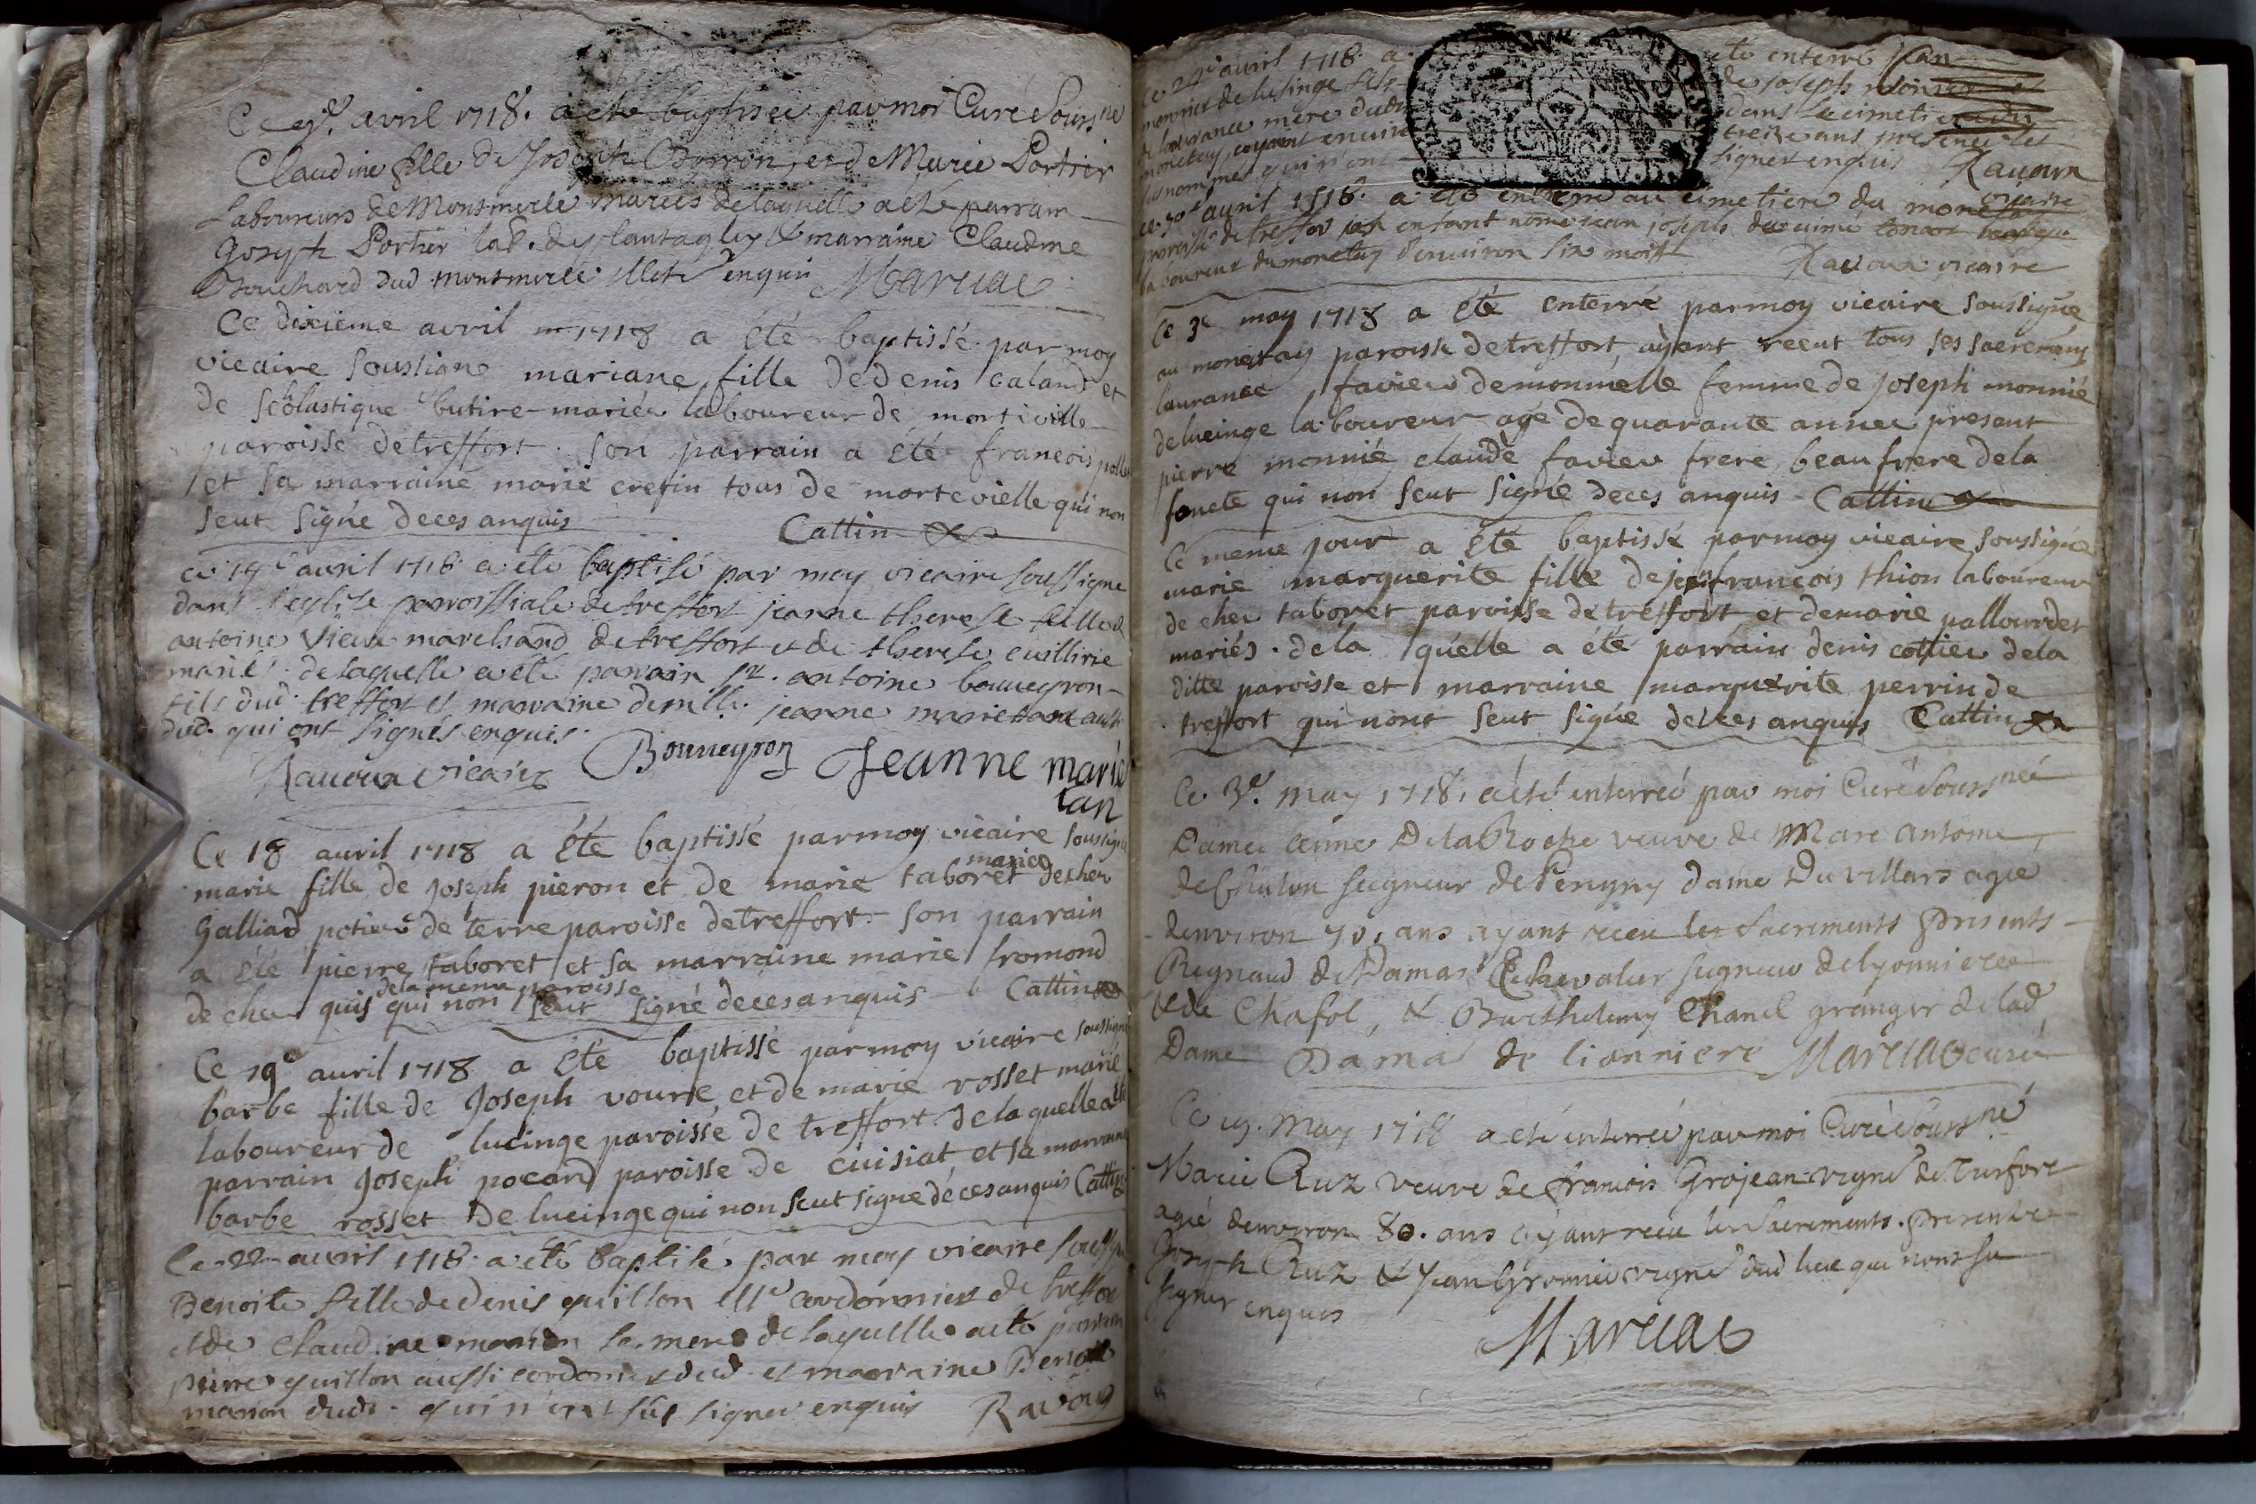 Ce 9e. avril 1718. a eté baptisée par moi Curé sours.né
Claudine fille de Joseph et de Marie Portier
Laboureurs de Montmerle mariés de laquelle a été parrain
Joseph Portier lab. de & marraine Claudine
Bouchard dud montmerle Illet. enquis Maruac
Ce dixieme avril 1718 a été baptissé par moy
vicaire soussigne mariane fille de denis caland et
de scolastique butire mariés laboureur de morteville
paroisse de treffort son parrain a été francois
et sa marraine marie cretin tous de mortevielle qui non
seut signé de ces anquis Cattin
ce avril 1718 a été baptisé par moy vicaire soussigne
dans l'eglise parroissiale de treffort jeanne therese fille d
antoine vieux marchand de treffort et de therese cuillirie
mariés de laquelle a eté parrain sr. antoine bouueyron
fils dud. treffort et marraine demlle. jeanne marie
dud. qui ont signés enquis.
Rauoux vicaire Bouueyron Jeanne marie
tan
Ce 18 auril 1718 a été baptissé par moy vicaire soussigné
marie fille de joseph pieron et de marie taboret mariés de chez
Galliard potier de terre paroisse de treffort son parrain
a été pierre taboret et sa marraine marie fromond
de chez quis de la meme paroisse qui non seut signé de ces anquis Cattin
Ce 19e auril 1718 a été baptissé par moy vicaire soussigné
barbe fille de Joseph vourle et de marie rosset marié
laboureur de lucinge paroisse de treffort de laquelle a été
parrain joseph pocard paroisse de cuisiat et sa marraine
barbe rosset de lucinge qui non seut signe de ces anquis Cattin
Ce 22 auril 1718 a été baptisé par moy vicaire soussig
Benoite fille de denis guillon Me cordonnier de treffort
et de Claudine manon sa mere de laquelle a eté parrain
pierre guillon aussi cordonier dud. et marraine Benoite
manon dud. qui n'ont sus signer enquis Rauoux
ce 24e auril 1718 a été enterré jean
monnier de lusinge fils de joseph monnier et
de laurance mere dud dans le cimetiere du
monetay, ayant enuiron treize ans presence les
nommés qui n'ont signer enquis Rauoux
vicaire
ce 30e auril 1718 a été enterré au cimetiere du monetay
paroisse de treffor un enfant nomé jean joseph
laboureur du monetay d'enuiron six mois Rauoux vicaire
Ce 3e may 1718 a été enterré par moy vicaire soussigné
au monetay paroisse de treffort, ayant recut tous ses sacremans
laurance favier de monnielle femme de joseph monnié
de lucinge laboureur agé de quarante année present
pierre monnié claude favier frere, beau frere de la
fonete qui non seut signé de ces anquis Cattin
Ce meme jour a été baptissé par moy vicaire soussigné
marie marguerite fille de jean francois thion laboureur
de chez taboret paroisse de treffort et de marie pallourdet
mariés. de la quélle a été parrain denis cottier de la
ditte paroisse et marraine marguerite perrin de
treffort qui nont seut signé de ces anquis Cattin
Ce 3e. may 1718. a été enterrée par moi Curé sours.né
Dame Anne De la Roche veuve de Marc Antoine
de seigneur de Perigny dame Du villars agée
denviron 70. ans ayant receu les sacrements presents
Regnaud de Damas Chevalier seigneur de lyonniere
& de Chafol, & Barthelemy Chanel granger de lad.
Dame Dama de lionniere Maruac curé
Ce 19. May 1718 a eté enterrée par moi Curé sours.né
Marie Ruz veuve de francois Grojean vigne. de Treffort
agée denviron 80. ans ayant receu les sacrements. presents
Joseph Ruz & Jean vigne. dud lieu qui nont su
signer enquis
Maruac